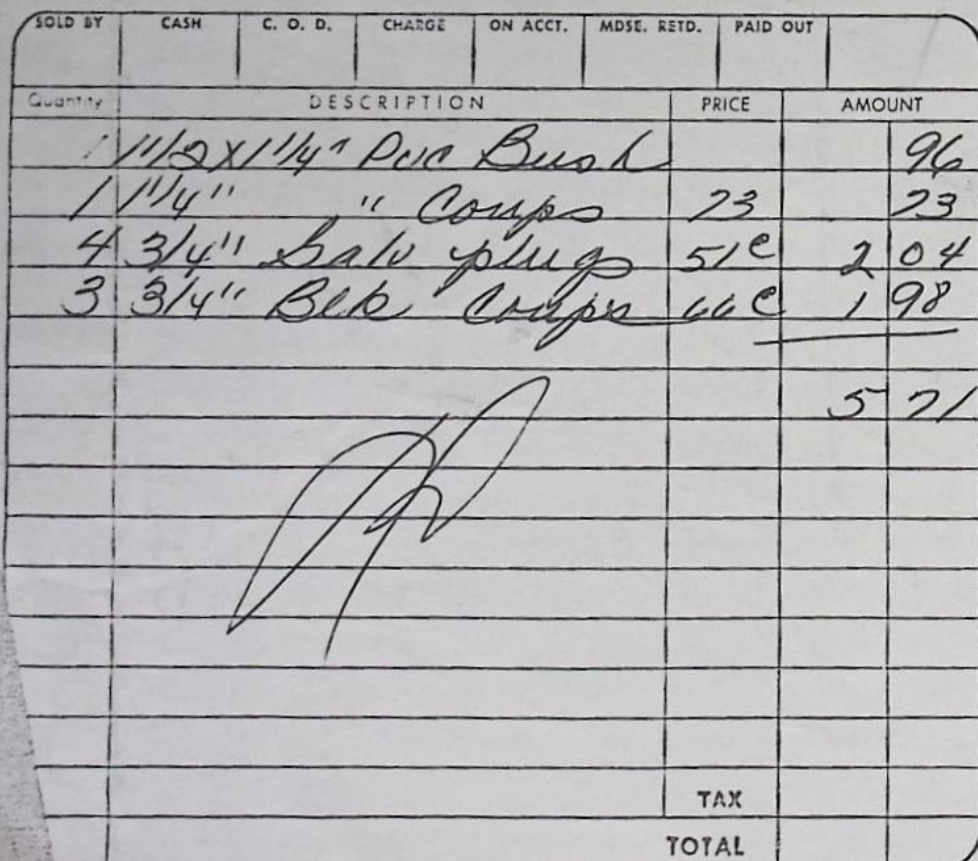 SOLD BY CASH C. O. D. CHARGE ON ACCT. MDSE. RETD. PAID OUT
Quantity DESCRIPTION PRICE AMOUNT
1 1 1/2 X 1 1/4" Pvc Bush 96
1 1 1/4" " Coups 73 73
4 3/4" Galv plugs 51c 2 04
3 3/4" Blk Coups 66c 1 98
5 71
TAX
TOTAL